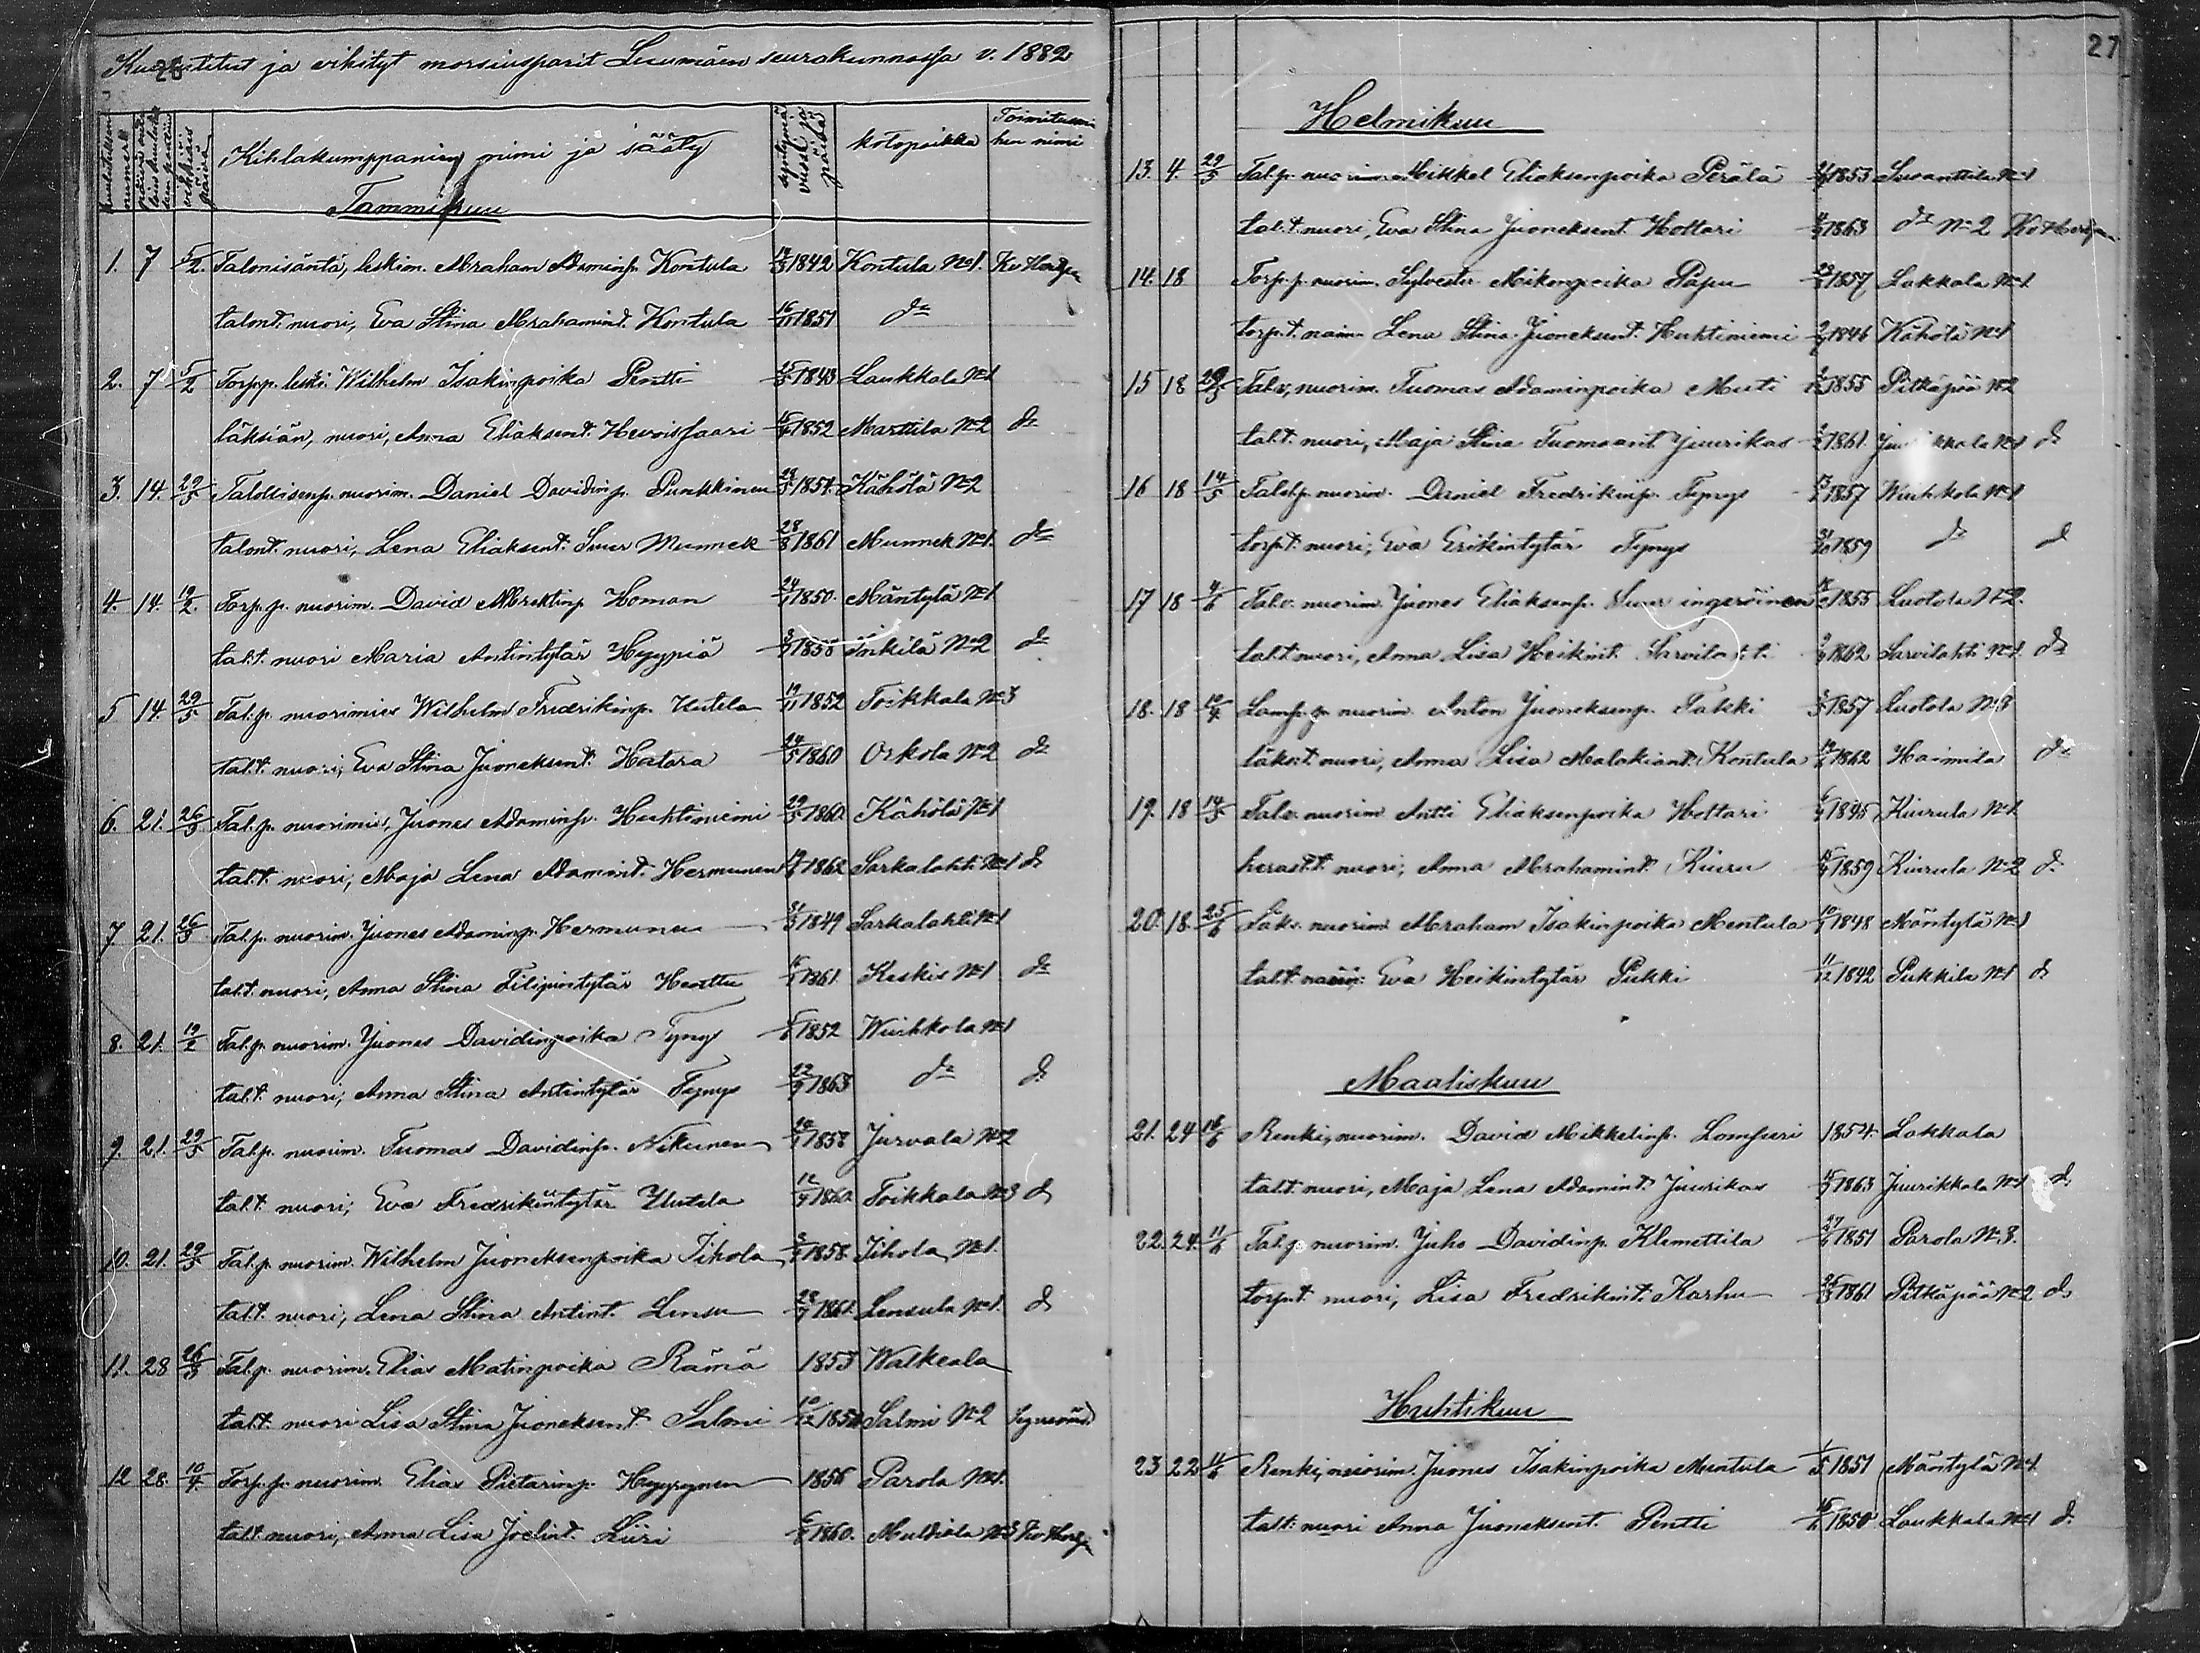 Kuulutetut ja vihityt morsiusparit Luumäen seurakunnassa v. 1882
26
Kihlakumppanien nimi ja sääty
syntymä vuosi ja päivä
kotopaikka
Toimitusmiehen nimi
Tammikuu
1. 7 5/2. Talonisäntä, leskim. Abraham Adaminp. Kontula 1842 Kontula No 1.
talont. nuori, Eva Stina Abrahamint. Kontula 16/11 1851 do
2. 7 5/2 Torp.p. leski Wilhelm Isakinpoika Pentti 1843 Laukkala No 1
läksiän, nuori, Anna Eliaksent. Hevoissaari 1852 Marttila No 2 do
3. 14. 29/5 Talollisenp. nuorim. Daniel Davidinp. Punkkinen 1854. Kähölä No 2
talont. nuori, Lena Eliaksent. Suur Munnek 28/8 1861 Munnek No 1. do
4. 14. 19/2. Torp. p. nuorim. David Homan 1850. Mäntylä No 1
tal.t. nuori Maria Antintytär Hyypiä 1855 Inkilä No 2 do
5 14. 29/5 Tal.p. nuorimies Wilhelm Fredrikinp. Uutela 19/11 1852 Toikkala No 3
tal.t. nuori, Eva Stina Juoneksent. Hatara 24/5 1860 Orkola No 2 do
6. 21. 26/3 Tal.p. nuorimies, Juones Adaminp. Huhtiniemi 29/5 1860. Kähölä No 1
tal.t. nuori, Maja Lena Adamint. Hermunen 1862 Sarkalahti No 1 do
7 21. 26/3 Tal.p. nuorim. Juones Adaminp. Hermunen 31/3 1849 Sarkalahti No 1
tal.t. nuori, Anna Stina Filipintytär Henttu 1861 Keskis No 1 do
8. 21. 19/2 Tal.p. nuorim. Juones Davidinpoika Tynys 1852 Wiuhkola No 1
tal.t. nuori, Anna Stina Antintytär Tynys 22/9 1863 do do
9. 21. 29/5 Tal.p. nuorim. Tuomas Davidinp. Nikunen 1858 Jurvala No 2
tal.t. nuori, Eva Fredrikintytär Uutela 12/9 1860. Toikkala No 3 do
10. 21. 29/5 Tal.p. nuorim. Wilhelm Juoneksenpoika Iihola 1858. Iihola No 1.
tal.t. nuori, Lena Stina Antint. Lensu 28/7 1861. Lensula No 1. do
11. 28 26/3 Tal.p. nuorim. Elias Matinpoika Rämä 1853 Walkeala
tal.t. nuori Lisa Stina Juoneksent. Salmi 10/12 185 Salmi No 2
12 28. 10/4. Torp.p. nuorim. Elias Pietarinp. Hyyrynen 1856 Parola No 1.
tal.t. nuori, Anna Lisa Joelint. Liiri 1860. No 3
27
Helmikuu
13. 4. 29/5 Tal.p. nuorim. Mikkel Eliaksenpoika Perälä 1853 Suoanttila No 1
tal.t. nuori, Eva Stina Juoneksent. Hottari 1863 do No 2
14. 18 Torp. p. nuorim. Sylvester Mikonpoika Papu 1857 Lakkala No 1
torp.t. Lena Stina Juoneksent. Huhtiniemi 1846 Kähölä No 1
15 18 29/5 Talv, nuorim. Tuomas Adaminpoika Muti 1855 Pitkäpää No 2
tal.t. nuori, Maja Stina Tuomaant. Juurikas 1861. No 1 do
16 18 14/5 Talol.p. nuorim. Daniel Fredrikinp. Tynys 1857 Wiuhkola No 1
torp.t. nuori, Eva Erikintytär Tynys 31/10 1859 do do
17 18 4/6 Talv. nuorim. Juones Eliaksenp. Suur ingeröinen 1855 Luotola No 2.
tal.t. nuori, Anna Lisa Heikint. Sarvilahti 1862 Sarvilahti No 1. do
18. 18 10/4 Lamp. p. nuorim. Anton Juoneksenp. Takki 1857 Luotola No 3
läks.t. nuori, Anna Lisa Malakiant. Kontula 1862 Haimila do
19. 18 14/5 Talv. nuorim Antti Eliaksenpoika Hottari 1845 Kiurula No 1
herast.t. nuori, Anna Abrahamint. Kiuru 1859 Kiurula No 2 do
20. 18. 25/6 Läks. nuorim Abraham Isakinpoika Mentula 1848 Mäntylä No 1
tal.t. Eva Heikintytär Pukki 11/12 1842 Pukkila No 1 do
Maaliskuu
21. 24 18/6 Renki, nuorim. David Mikkelinp. Lomperi 1854. Lakkala
tal.t. nuori, Maja Lena Adamint. Juurikas 1863 Juurikkala No 1 do
22. 24. 11/6 Tal.p. nuorim. Juho Davidinp. Klemettila 1851 Parola No 3.
torp.t. nuori, Lisa Fredrikint. Karhu 1861 Pitkäpää No 2 do
Huhtikuu
23. 22 11/6 Renki, nuorim. Juones Isakinpoika Mentula 1/5 1851 Mäntylä No 1.
tal.t. nuori Anna Juoneksent. Pentti 1850 Laukkala No 1 do